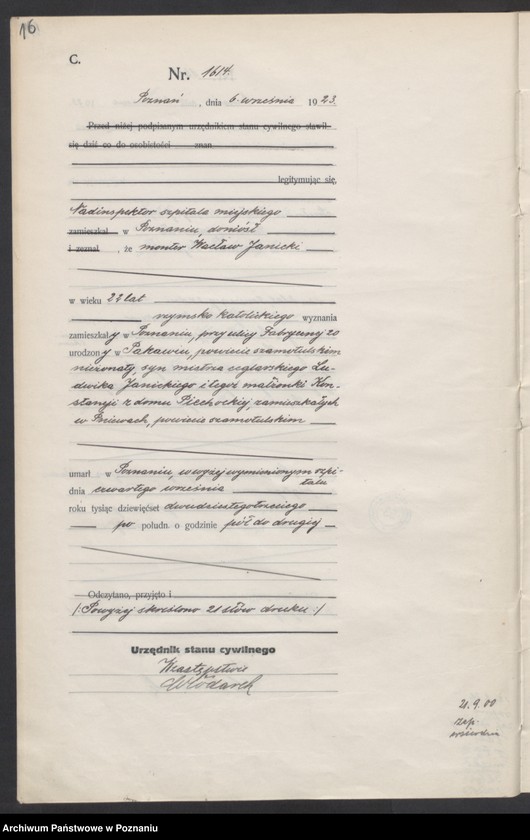 16
C.
Nr. 1614.
Poznań, dnia 6. września 1923.
Przed niżej podpisanym urzędnikiem stanu cywilnego stawił
się dziś co do osobistości znan
legitymując się,
Nadinspektor szpitala miejskiego
zamieszkał w Poznaniu, doniósł
i zeznał, że monter Wacław Janicki
w wieku 22 lat
rzymsko katolickiego wyznania
zamieszkały w Poznaniu, przy ulicy Fabrycznej 20
urodzony w Pakawiu, powiecie szamotulskim
nieżonaty, syn mistrza ceglarskiego Lu-
dwika Janickiego i tegoż małżonki Kon-
stancji z domu Piechockiej, zamieszkałych
w Pniewach, powiecie szamotulskim
umarł w Poznaniu, w wyżej wymienionym szpi-
talu
dnia czwartego września
roku tysiąc dziewięćset dwudziestego trzeciego
po połudn. o godzinie pół do drugiej
Odczytano, przyjęto i
/: Powyżej skreślono 21 słów druku :/
Urzędnik stanu cywilnego
W zastępstwie
Włodarek
21.9.00
Archiwum Państwowe w Poznaniu